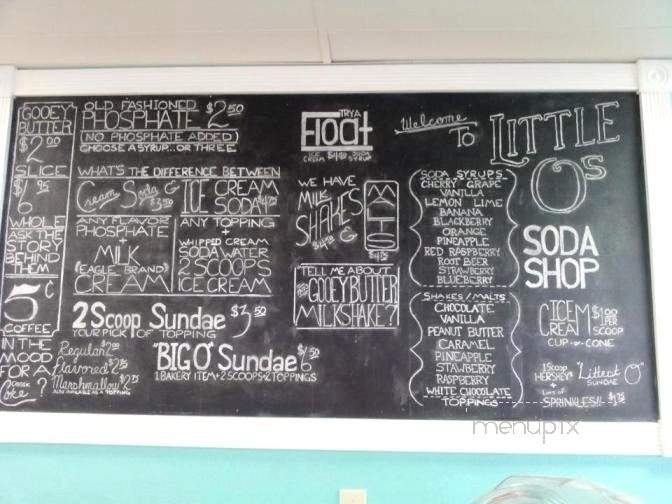 GOOEY
BUTTER
$2.00
SLICE
WHOLE
ASK THE
STORY
BEHIND
THEM
5¢
COFFEE
IN THE
MOOD
FOR A
Coke?
OLD FASHIONED
PHOSPHATE $2.50
(NO PHOSPHATE ADDED)
CHOOSE A SYRUP...OR THREE
WHAT'S THE DIFFERENCE BETWEEN
Cream Soda &
$3.50
ANY FLAVOR
PHOSPHATE
+
MILK
(EAGLE BRAND)
CREAM
ICE CREAM
SODA
ANY TOPPING
+
WHIPPED CREAM
SODA WATER
2 SCOOPS
ICE CREAM
2 Scoop Sundae $3.50
YOUR PICK OF TOPPING
Regular
Flavored
Marshmallow
ALSO AVAILABLE AS A TOPPING
"BIG O" Sundae $6.50
1 BAKERY ITEM + 2 SCOOPS & TOPPINGS
TRY A
Float
ICE CREAM SODA SYRUP
WE HAVE
MILK
SHAKES
&
MALTS
TELL ME ABOUT
THE
GOOEY BUTTER
MILKSHAKE?
SODA SYRUPS
CHERRY GRAPE
VANILLA
LEMON LIME
BANANA
BLACKBERRY
ORANGE
PINEAPPLE
RED RASPBERRY
ROOT BEER
STRAWBERRY
BLUEBERRY
SHAKES/MALTS
CHOCOLATE
VANILLA
PEANUT BUTTER
CARAMEL
PINEAPPLE
STAWBERRY
RASPBERRY
WHITE CHOCOLATE
TOPPINGS
Welcome
To LITTLE
O's
SODA
SHOP
ICE CREAM $1.00 PER SCOOP
CUP-or-CONE
1 Scoop
HERSHEY'S
+
Lots of
SPRINKLES!!
"Littlest O"
SUNDAE
$1.75
menupix